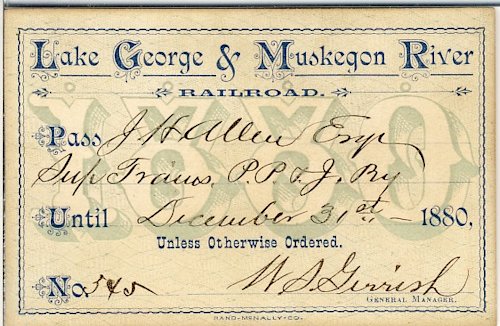 Lake George & Muskegon River
RAILROAD.
Pass J H Allen Esqr
Sup Trains. P. P. & J. Ry
Until December 31st 1880,
Unless Otherwise Ordered.
No. 545 W S Gerrish
GENERAL MANAGER.
RAND-MCNALLY-CO.
1880